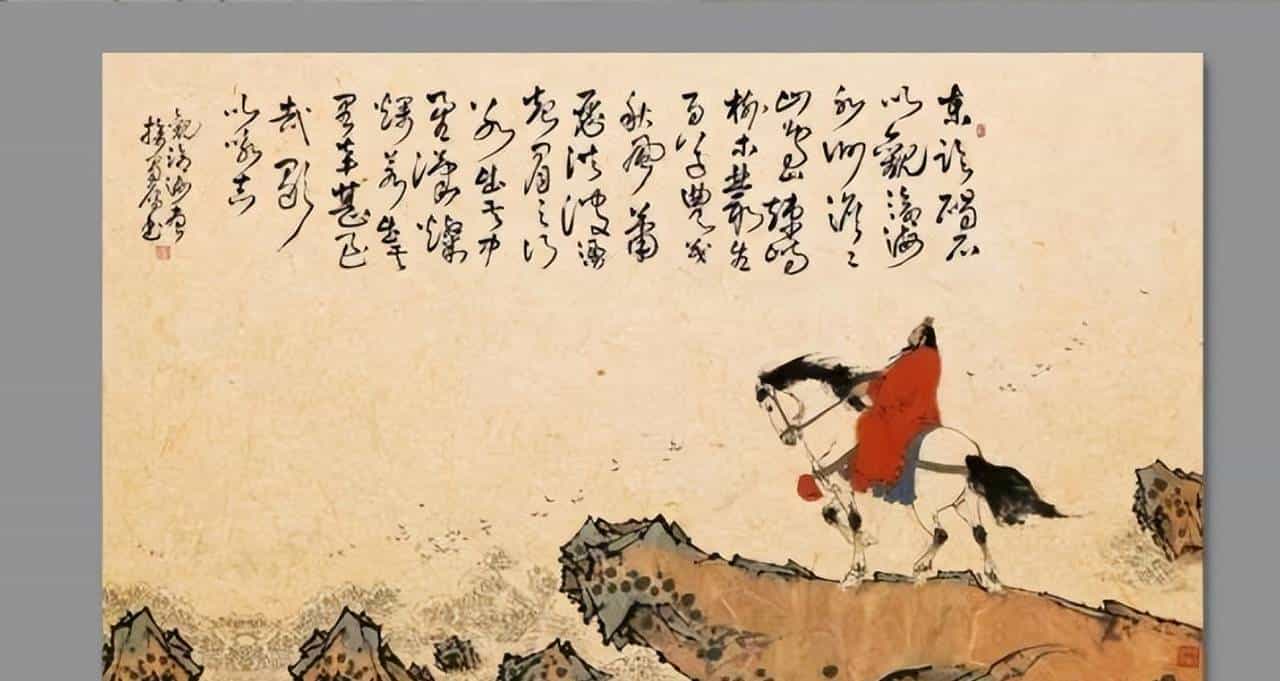 東臨碣石
以觀滄海
水何澹〻
山島竦峙
樹木叢生
百草豐茂
秋風蕭
瑟洪波湧
起日月之行
若出其中
星漢燦
爛若出其
里幸甚至
哉歌
以詠志
觀滄海